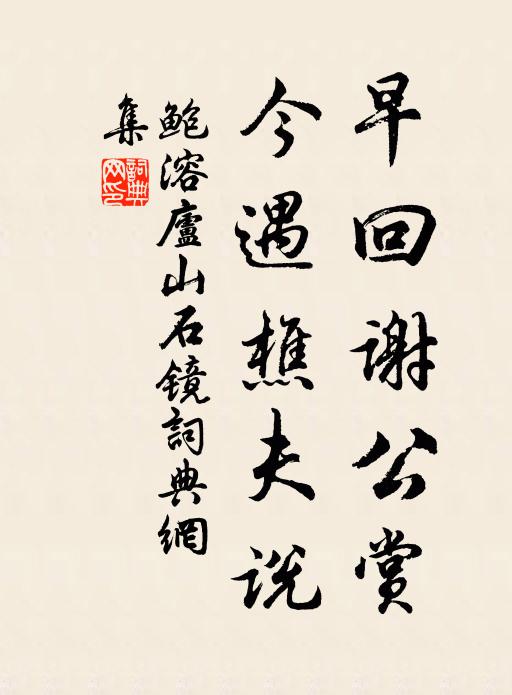 早回谢公赏
今遇樵夫说
鲍溶廬山石镜詞典網
集
詞典網印